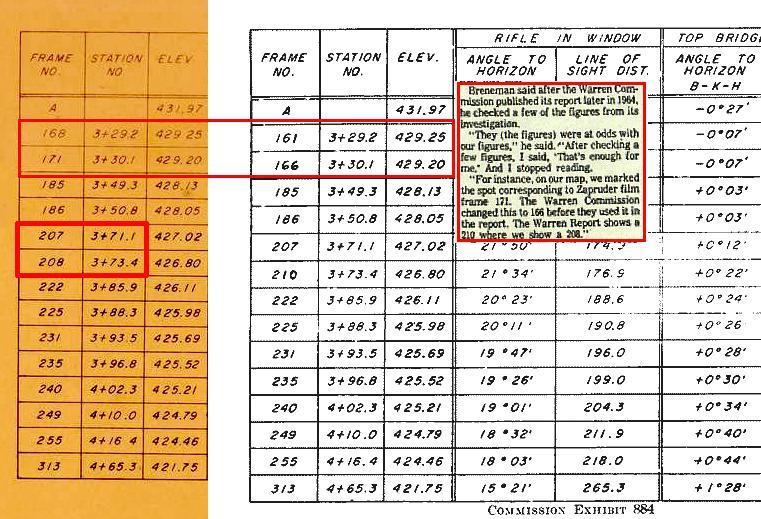 FRAME NO. STATION NO ELEV.
A 431.97
168 3+29.2 429.25
171 3+30.1 429.20
185 3+49.3 428.13
186 3+50.8 428.05
207 3+71.1 427.02
208 3+73.4 426.80
222 3+85.9 426.11
225 3+88.3 425.98
231 3+93.5 425.69
235 3+96.8 425.52
240 4+02.3 425.21
249 4+10.0 424.79
255 4+16.4 424.46
313 4+65.3 421.75
RIFLE IN WINDOW TOP BRIDG
FRAME NO. STATION NO. ELEV. ANGLE TO HORIZON LINE OF SIGHT DIST. ANGLE TO HORIZON B-K-H
A 431.97 -0°27'
161 3+29.2 429.25 -0°07'
166 3+30.1 429.20 -0°07'
185 3+49.3 428.13 +0°03'
186 3+50.8 428.05 +0°03'
207 3+71.1 427.02 21°50' 174.9 +0°12'
210 3+73.4 426.80 21°34' 176.9 +0°22'
222 3+85.9 426.11 20°23' 188.6 +0°24'
225 3+88.3 425.98 20°11' 190.8 +0°26
231 3+93.5 425.69 19°47' 196.0 +0°28'
235 3+96.8 425.52 19°26' 199.0 +0°30'
240 4+02.3 425.21 19°01' 204.3 +0°34'
249 4+10.0 424.79 18°32' 211.9 +0°40'
255 4+16.4 424.46 18°03' 218.0 +0°44'
313 4+65.3 421.75 15°21' 265.3 +1°28'
Breneman said after the Warren Com-
mission published its report later in 1964,
he checked a few of the figures from its
investigation.
"They (the figures) were at odds with
our figures," he said. "After checking a
few figures, I said, 'That's enough for
me.' And I stopped reading.
"For instance, on our map, we marked
the spot corresponding to Zapruder film
frame 171. The Warren Commission
changed this to 166 before they used it in
the report. The Warren Report shows a
210 where we show a 208."
COMMISSION EXHIBIT 884